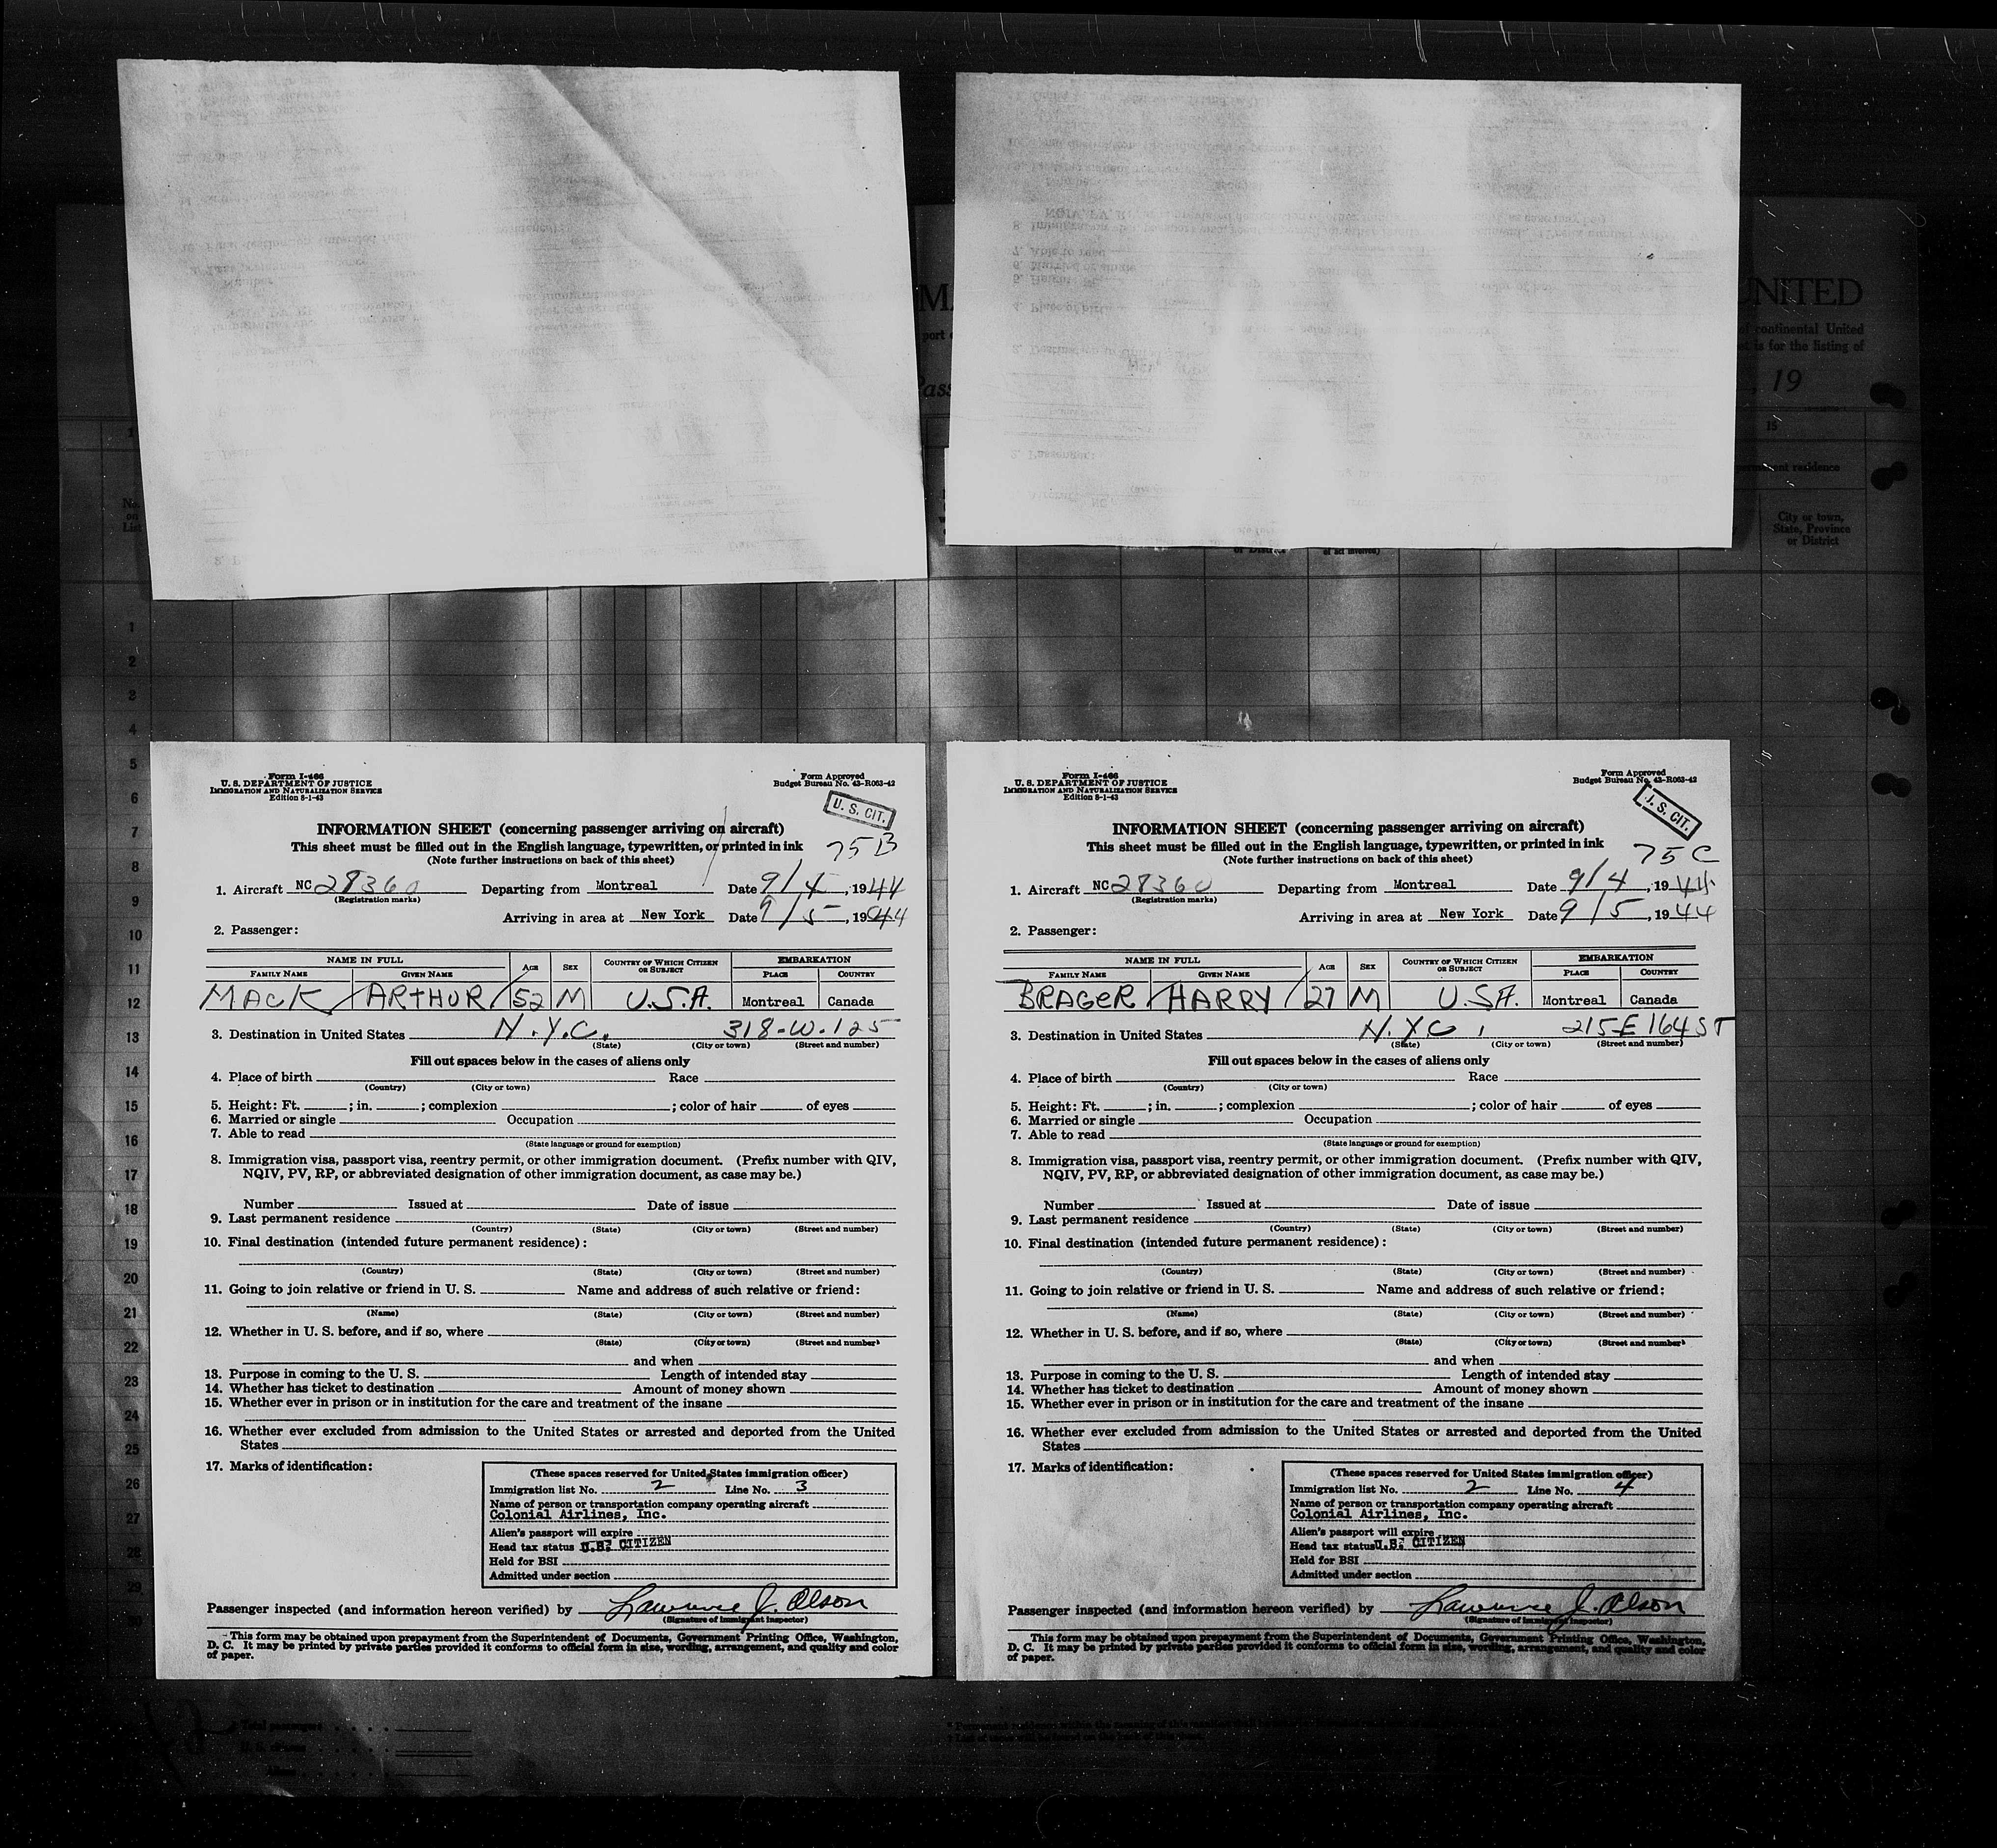 UNITED
continental United
is for the listing of
19
15
residence
City or town,
State, Province
or District
No.
on
List
1
2
3
4
5
6
7
8
9
10
11
12
13
14
15
16
17
18
19
20
21
22
23
24
25
26
27
28
29
Form I-466
U. S. DEPARTMENT OF JUSTICE
IMMIGRATION AND NATURALIZATION SERVICE
Edition 8-1-43
Form Approved
Budget Bureau No. 43-R063-42
U. S. CIT.
INFORMATION SHEET (concerning passenger arriving on aircraft)
This sheet must be filled out in the English language, typewritten, or printed in ink
(Note further instructions on back of this sheet)
75B
1. Aircraft NC 28360 Departing from Montreal Date 9/4, 1944
(Registration marks)
Arriving in area at New York Date 9/5, 1944
2. Passenger:
NAME IN FULL AGE SEX COUNTRY OF WHICH CITIZEN OR SUBJECT EMBARKATION
FAMILY NAME GIVEN NAME PLACE COUNTRY
MACK ARTHUR 52 M U.S.A. Montreal Canada
3. Destination in United States N.Y.C. 318-W-125
(State) (City or town) (Street and number)
Fill out spaces below in the cases of aliens only
4. Place of birth Race
(Country) (City or town)
5. Height: Ft. ; in. ; complexion ; color of hair of eyes
6. Married or single Occupation
7. Able to read
(State language or ground for exemption)
8. Immigration visa, passport visa, reentry permit, or other immigration document. (Prefix number with QIV,
NQIV, PV, RP, or abbreviated designation of other immigration document, as case may be.)
Number Issued at Date of issue
9. Last permanent residence
(Country) (State) (City or town) (Street and number)
10. Final destination (intended future permanent residence):
(Country) (State) (City or town) (Street and number)
11. Going to join relative or friend in U. S. Name and address of such relative or friend:
(Name) (State) (City or town) (Street and number)
12. Whether in U. S. before, and if so, where
(State) (City or town) (Street and number)
and when
13. Purpose in coming to the U. S. Length of intended stay
14. Whether has ticket to destination Amount of money shown
15. Whether ever in prison or in institution for the care and treatment of the insane
16. Whether ever excluded from admission to the United States or arrested and deported from the United
States
17. Marks of identification:
(These spaces reserved for United States immigration officer)
Immigration list No. 2 Line No. 3
Name of person or transportation company operating aircraft
Colonial Airlines, Inc.
Alien's passport will expire
Head tax status U.S. CITIZEN
Held for BSI
Admitted under section
Passenger inspected (and information hereon verified) by Lawrence J. Olson
(Signature of immigrant inspector)
This form may be obtained upon prepayment from the Superintendent of Documents, Government Printing Office, Washington,
D. C. It may be printed by private parties provided it conforms to official form in size, wording, arrangement, and quality and color
of paper.
Form I-466
U. S. DEPARTMENT OF JUSTICE
IMMIGRATION AND NATURALIZATION SERVICE
Edition 8-1-43
Form Approved
Budget Bureau No. 43-R063-42
U. S. CIT.
INFORMATION SHEET (concerning passenger arriving on aircraft)
This sheet must be filled out in the English language, typewritten, or printed in ink
(Note further instructions on back of this sheet)
75C
1. Aircraft NC 28360 Departing from Montreal Date 9/4, 1944
(Registration marks)
Arriving in area at New York Date 9/5, 1944
2. Passenger:
NAME IN FULL AGE SEX COUNTRY OF WHICH CITIZEN OR SUBJECT EMBARKATION
FAMILY NAME GIVEN NAME PLACE COUNTRY
BRAGER HARRY 27 M U.S.A. Montreal Canada
3. Destination in United States N.Y.C, 215 E 164 ST
(State) (City or town) (Street and number)
Fill out spaces below in the cases of aliens only
4. Place of birth Race
(Country) (City or town)
5. Height: Ft. ; in. ; complexion ; color of hair of eyes
6. Married or single Occupation
7. Able to read
(State language or ground for exemption)
8. Immigration visa, passport visa, reentry permit, or other immigration document. (Prefix number with QIV,
NQIV, PV, RP, or abbreviated designation of other immigration document, as case may be.)
Number Issued at Date of issue
9. Last permanent residence
(Country) (State) (City or town) (Street and number)
10. Final destination (intended future permanent residence):
(Country) (State) (City or town) (Street and number)
11. Going to join relative or friend in U. S. Name and address of such relative or friend:
(Name) (State) (City or town) (Street and number)
12. Whether in U. S. before, and if so, where
(State) (City or town) (Street and number)
and when
13. Purpose in coming to the U. S. Length of intended stay
14. Whether has ticket to destination Amount of money shown
15. Whether ever in prison or in institution for the care and treatment of the insane
16. Whether ever excluded from admission to the United States or arrested and deported from the United
States
17. Marks of identification:
(These spaces reserved for United States immigration officer)
Immigration list No. 2 Line No. 4
Name of person or transportation company operating aircraft
Colonial Airlines, Inc.
Alien's passport will expire
Head tax status U.S. CITIZEN
Held for BSI
Admitted under section
Passenger inspected (and information hereon verified) by Lawrence J. Olson
(Signature of immigrant inspector)
This form may be obtained upon prepayment from the Superintendent of Documents, Government Printing Office, Washington,
D. C. It may be printed by private parties provided it conforms to official form in size, wording, arrangement, and quality and color
of paper.
Total passengers